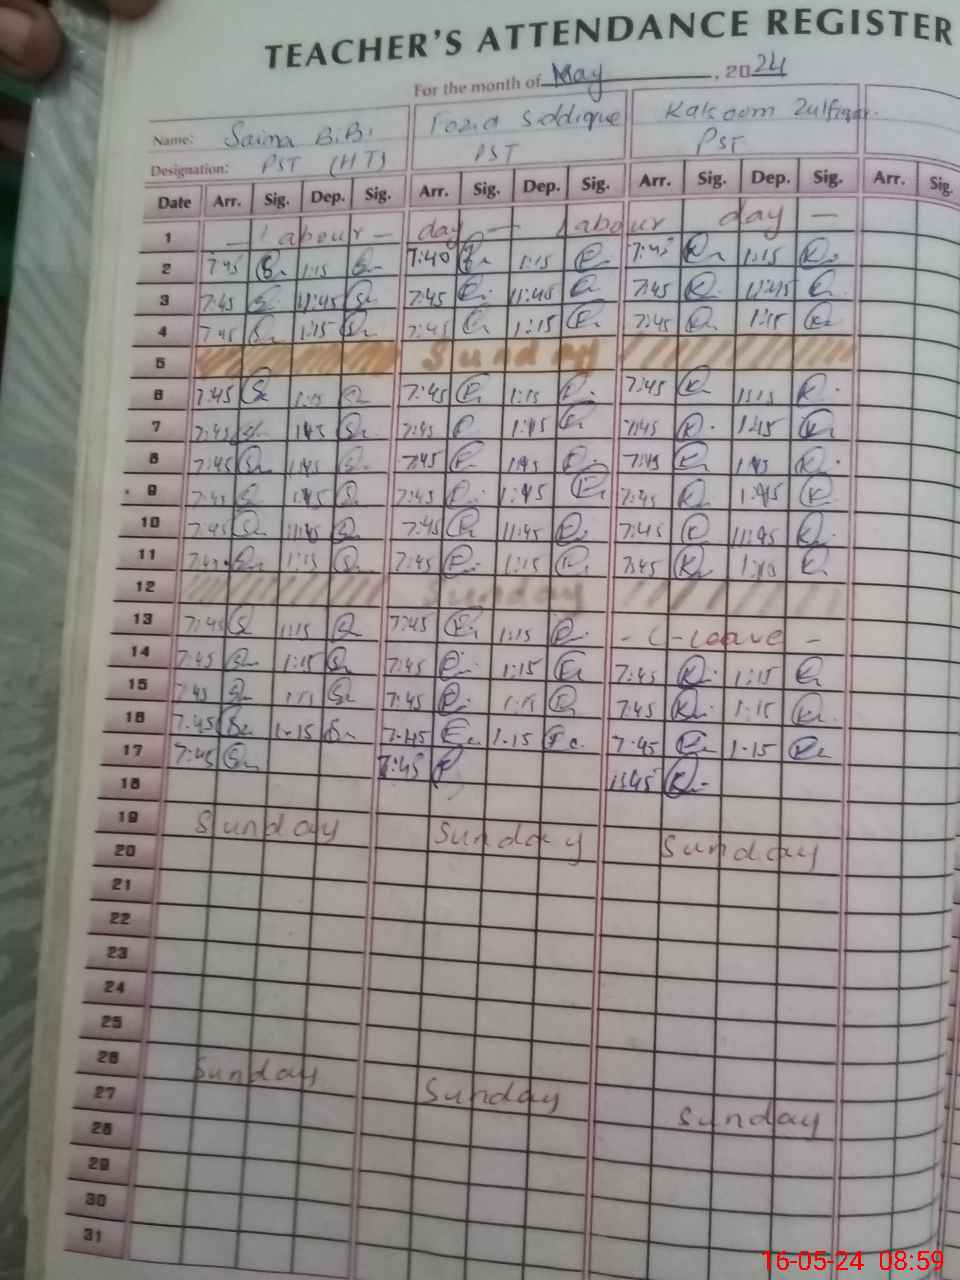 TEACHER'S ATTENDANCE REGISTER
For the month of May, 2024
Name: Saima BiBi Fozia Siddique Kalsoom Zulfiqar
Designation: PST (HT) PST PST
Date Arr. Sig. Dep. Sig. Arr. Sig. Dep. Sig. Arr. Sig. Dep. Sig. Arr. Sig.
1 — Labour — day — Labour day —
2 7:45 1:15 7:40 1:15 7:45 1:15
3 7:45 11:45 7:45 11:45 7:45 11:45
4 7:45 1:15 7:45 1:15 7:45 1:15
5 Sunday
6 7:45 1:15 7:45 1:15 7:45 1:15
7 7:45 1:45 7:45 1:45 7:45 1:45
8 7:45 1:45 7:45 1:45 7:45 1:45
9 7:45 1:45 7:45 1:45 7:45 1:45
10 7:45 11:45 7:45 11:45 7:45 11:45
11 7:45 1:15 7:45 1:15 7:45 1:15
12 Sunday
13 7:45 1:15 7:45 1:15 - C-Leave -
14 7:45 1:15 7:45 1:15 7:45 1:15
15 7:45 1:15 7:45 1:15 7:45 1:15
16 7.45 1-15 7-45 1-15 7:45 1-15
17 7:45 7:45
18
19 Sunday Sunday Sunday
20
21
22
23
24
25
26 Sunday Sunday Sunday
27
28
29
30
31
16-05-24 08:59